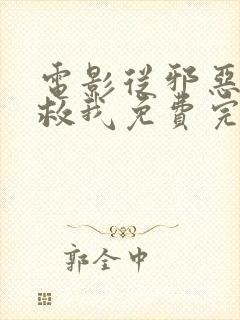 電影從邪惡
救我免費完
郭全中